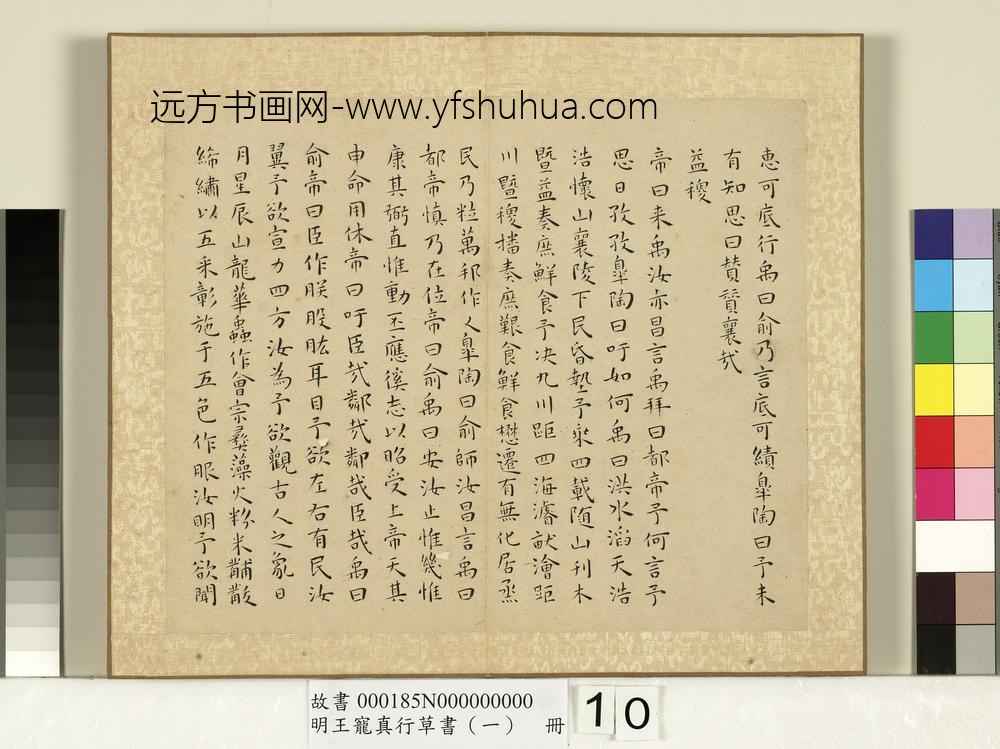 远方书画网-www.yfshuhua.com
惠可底行禹曰俞乃言底可績臯陶曰予未
有知思曰贊贊襄哉
益稷
帝曰来禹汝亦昌言禹拜曰都帝予何言予
思日孜孜臯陶曰吁如何禹曰洪水滔天浩
浩懷山襄陵下民昏墊予乘四載随山刊木
暨益奏庶鮮食予决九川距四海濬畎澮距
川暨稷播奏庶艱食鮮食懋遷有無化居烝
民乃粒萬邦作乂臯陶曰俞師汝昌言禹曰
都帝慎乃在位帝曰俞禹曰安汝止惟幾惟
康其弼直惟動丕應徯志以昭受上帝天其
申命用休帝曰吁臣哉鄰哉鄰哉臣哉禹曰
俞帝曰臣作朕股肱耳目予欲左右有民汝
翼予欲宣力四方汝為予欲觀古人之象日
月星辰山龍華蟲作會宗彝藻火粉米黼黻
絺繡以五采彰施于五色作服汝明予欲聞
故書 000185N000000000
明王寵真行草書（一） 冊
10